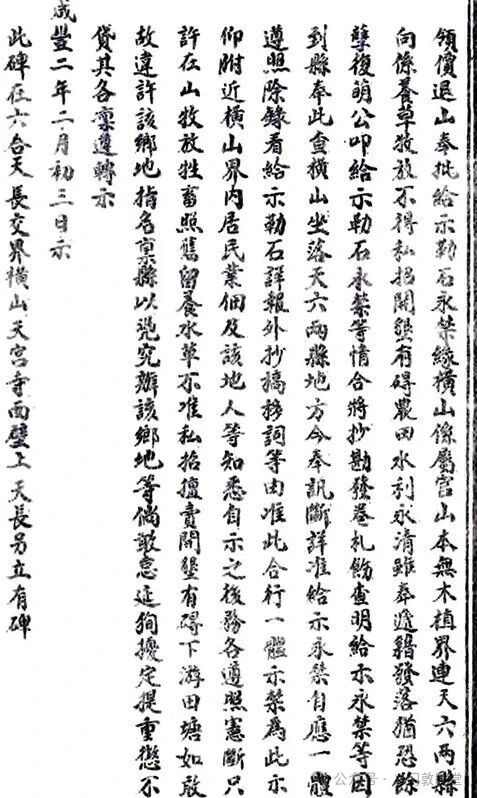 領償退山奉批給示勒石永禁緣横山係屬官山本無木植界連天六两縣
向係養草牧放不得私招開墾有碍農田水利永清雖奉遞籍發落猶恐餘
孽復萌公叩給示勒石永禁等情合將抄勘發卷札飭查明給示永禁等因
到縣奉此查横山坐落天六兩縣地方今奉訊斷詳准給示永禁自應一體
遵照除錄看給示勒石詳報外抄摘移詞等由准此合行一體示禁為此示
仰附近横山界内居民業佃及該地人等知悉自示之後務各遵照憲斷只
許在山牧放牲畜照舊留養水草不准私招擅賣開墾有碍下游田塘如敢
故違許該鄉地指名稟縣以凴究辦該鄉地等倘敢怠延狥擾定提重懲不
貸其各凛遵轉示
咸豐二年二月初三日示
此碑在六合天長交界横山天宫寺面壁上 天長另立有碑
公众号